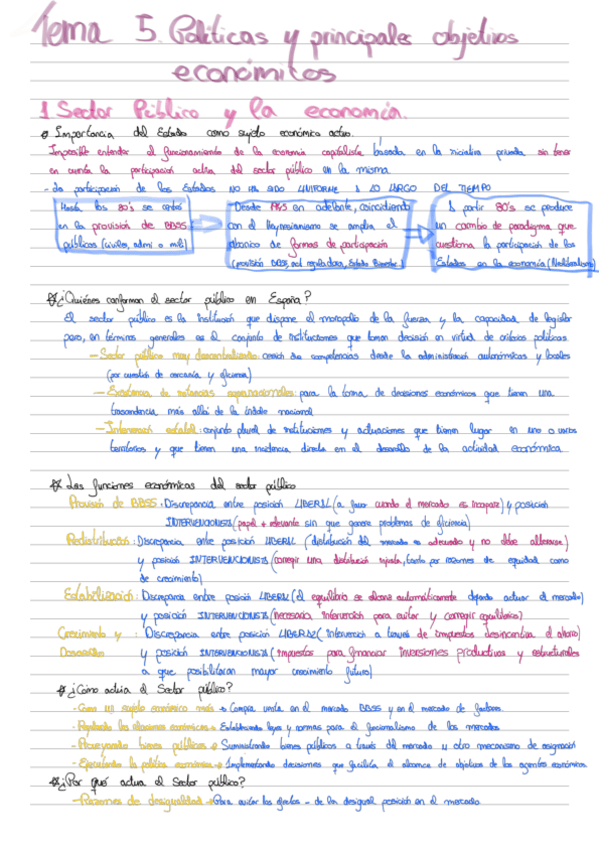 Tema 5. Políticas y principales objetivos
económicos
1 Sector Público y la economía.
Importancia del Estado como sujeto económico activo.
Imposible entender el funcionamiento de la economía capitalista basada en la iniciativa privada sin tener
en cuenta la participación activa del sector público en la misma
- La participación de los Estados NO HA SIDO UNIFORME A LO LARGO DEL TIEMPO
Hasta los 30's se centra
en la provisión de BBSS
públicos (civiles, admi o mil)
Desde 1945 en adelante, coincidiendo
con el Keynesianismo se amplia el
abanico de formas de participación
(provisión BBSS, act reguladora, Estado Bienestar)
A partir 80's se produce
un cambio de paradigma que
cuestiona la participación de los
Estados en la economía (Neoliberalismo)
¿Quiénes conforman el sector público en España?
El sector público es la institución que dispone el monopolio de la fuerza y la capacidad de legislar
pero, en términos generales es el conjunto de instituciones que toman decisión en virtud de criterios políticos
- Sector público muy descentralizado: cesión de competencias desde la administración autonómicas y locales
(por cuestión de cercanía y eficiencia)
- Existencia de instancias supranacionales: para la toma de decisiones económicas que tienen una
trascendencia más allá de la índole nacional
- Intervención estatal: conjunto plural de instituciones y actuaciones que tienen lugar en uno o varios
territorios y que tienen una incidencia directa en el desarrollo de la actividad económica
Las funciones económicas del sector público
Provisión de BBSS: Discrepancia entre posición LIBERAL (a favor cuando el mercado es incapaz) y posición
INTERVENCIONISTA (papel + relevante sin que genere problemas de eficiencia)
Redistribución: Discrepancia entre posición LIBERAL (distribución del mercado es adecuada y no debe alterarse)
y posición INTERVENCIONISTA (corregir una distribución injusta, tanto por razones de equidad como
de crecimiento)
Estabilización: Discrepancia entre posición LIBERAL (el equilibrio se alcanza automáticamente dejando actuar el mercado)
y posición INTERVENCIONISTA (necesaria intervención para evitar y corregir)
Crecimiento y : Discrepancia entre posición LIBERAL (intervención a través de impuestos desincentiva el ahorro)
Desarrollo y posición INTERVENCIONISTA (impuestos para financiar inversiones productivas y estructurales
a que posibilitaran mayor crecimiento futuro)
¿Cómo actúa el Sector público?
- Como un sujeto económico más → Compra, venta en el mercado BBSS y en el mercado de factores
- Regulando las relaciones económicas → Estableciendo leyes y normas para el funcionamiento de los mercados
- Proveyendo bienes públicos → Suministrando bienes públicos a través del mercado u otro mecanismo de asignación
- Ejecutando la política económica → Implementando decisiones que facilita el alcance de objetivos de los agentes económicos
¿Por qué actúa el Sector público?
- Razones de desigualdad → Para evitar los efectos - de la desigual posición en el mercado